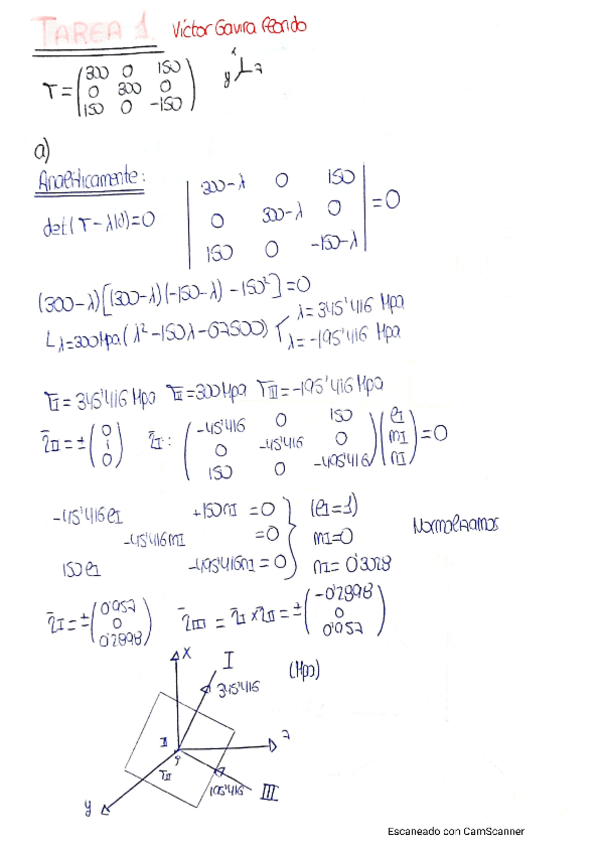 TAREA 1. Víctor Gavira Pedrido
T = (300 0 150
0 300 0
150 0 -150)
x
y z
a)
Analíticamente:
det(T-λId)=0
|300-λ 0 150
0 300-λ 0
150 0 -150-λ| =0
(300-λ)[(300-λ)(-150-λ)-150²]=0
λ=300Mpa(λ²-150λ-67500) λ=345'416 Mpa
λ=-195'416 Mpa
TI=345'416 Mpa TII=300Mpa TIII=-195'416 Mpa
ūII=±(0 1 0) ūI: (-45'416 0 150
0 -45'416 0
150 0 -495'416) (lI mI nI) =0
-45'416lI +150nI =0 (lI=1)
-45'416mI =0 mI=0 Normalizamos
150lI -495'416nI=0 nI=0'3028
ūI=±(0'957 0 0'2898) ūIII=ūI×ūII=±(-0'2898 0 0'957)
x I (Mpa)
345'416
II z
TII
195'416 III
y
Escaneado con CamScanner